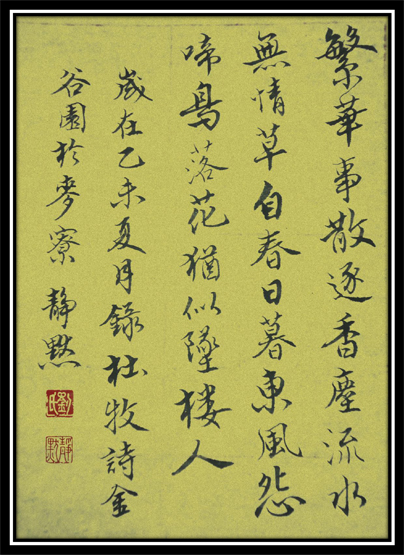 繁華事散逐香塵流水
無情草自春日暮東風怨
啼鳥落花猶似墜楼人
歲在乙未夏月錄杜牧詩金
谷園於麥寮 靜默
劉氏
靜默